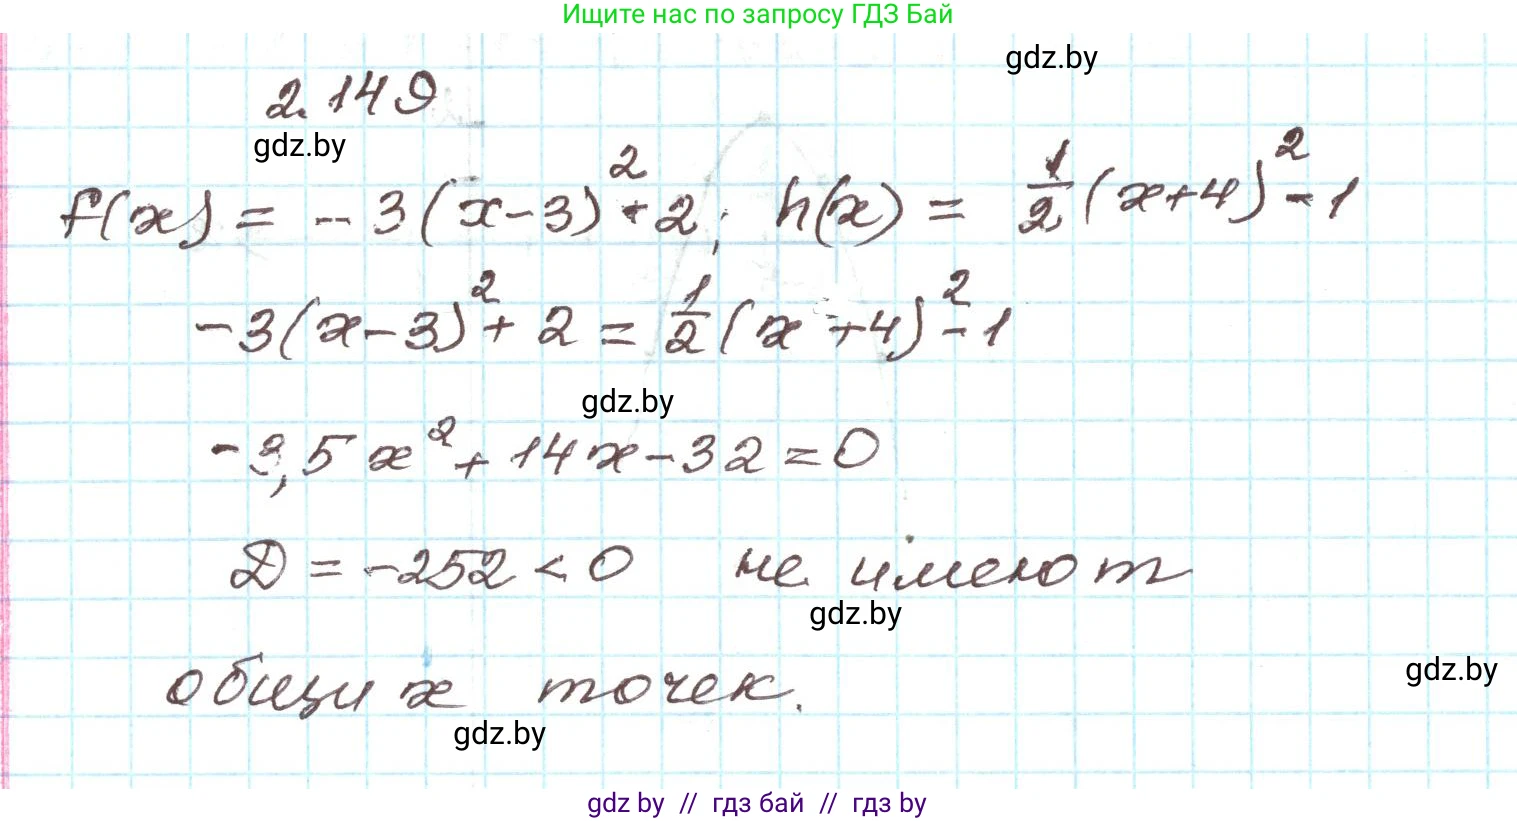 Ищите нас по запросу ГДЗ Бай
gdz.by
2.149
gdz.by
f(x) = -3(x-3)²+2; h(x) = 1/2(x+4)²-1
-3(x-3)²+2 = 1/2(x+4)²-1
gdz.by
-3,5x²+14x-32=0
D = -252 < 0 не имеют
gdz.by
общих точек.
gdz.by
gdz.by
gdz by // гдз бай // гдз by